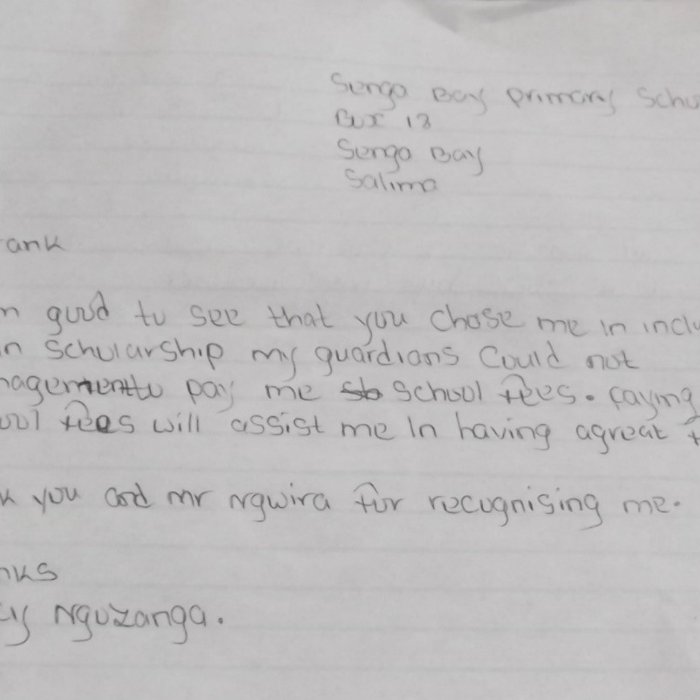 Senga Bay primary Scho
Box 13
Senga Bay
Salima
ank
good to see that you chose me in inclu
n scholarship my guardians Could not
nagementto pay me school fees. Paying
ool fees will assist me In having agreat f
k you and mr Ngwira for recognising me.
nks
y Nguzanga.